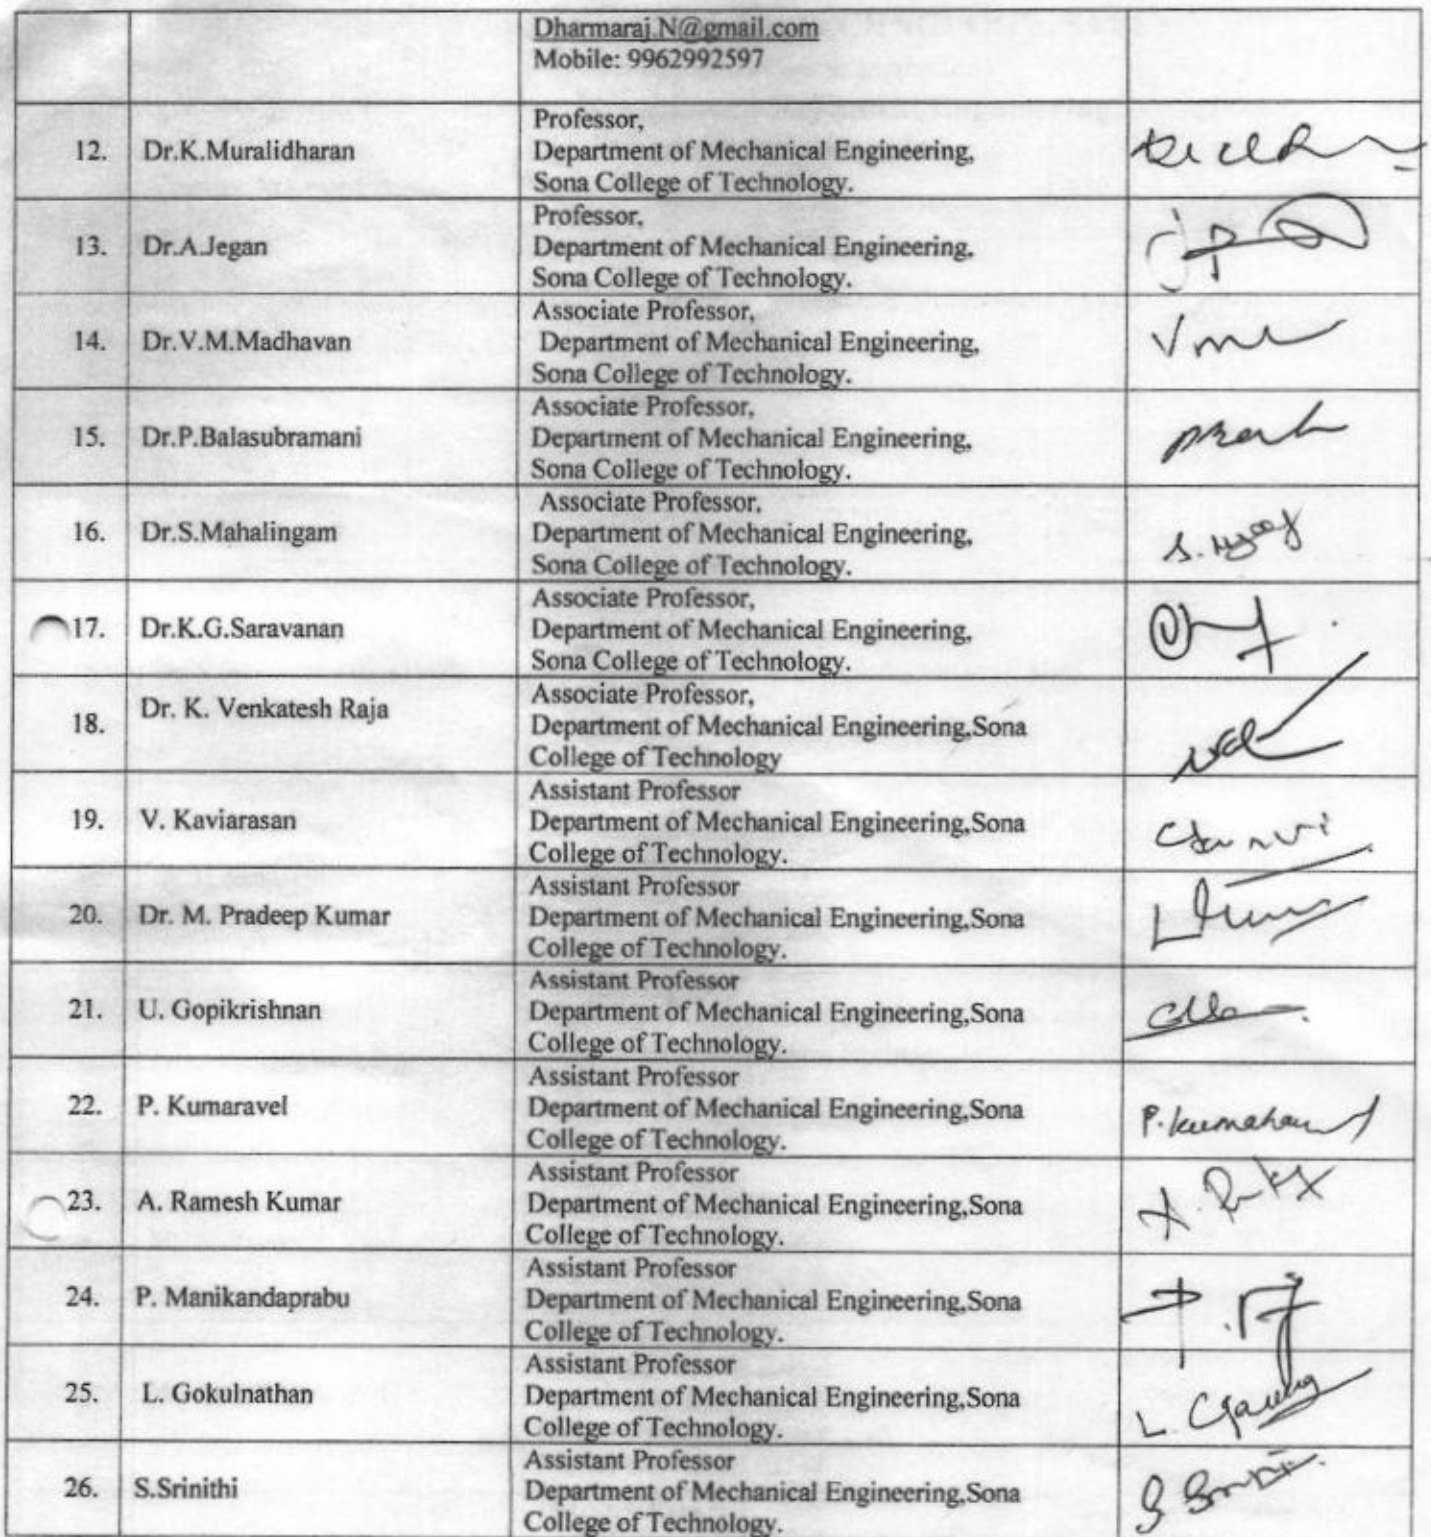 Dharmaraj.N@gmail.com
Mobile: 9962992597
12. Dr.K.Muralidharan
Professor,
Department of Mechanical Engineering,
Sona College of Technology.
13. Dr.A.Jegan
Professor,
Department of Mechanical Engineering,
Sona College of Technology.
14. Dr.V.M.Madhavan
Associate Professor,
Department of Mechanical Engineering,
Sona College of Technology.
15. Dr.P.Balasubramani
Associate Professor,
Department of Mechanical Engineering,
Sona College of Technology.
16. Dr.S.Mahalingam
Associate Professor,
Department of Mechanical Engineering,
Sona College of Technology.
17. Dr.K.G.Saravanan
Associate Professor,
Department of Mechanical Engineering,
Sona College of Technology.
18. Dr. K. Venkatesh Raja
Associate Professor,
Department of Mechanical Engineering,Sona
College of Technology
19. V. Kaviarasan
Assistant Professor
Department of Mechanical Engineering,Sona
College of Technology.
20. Dr. M. Pradeep Kumar
Assistant Professor
Department of Mechanical Engineering,Sona
College of Technology.
21. U. Gopikrishnan
Assistant Professor
Department of Mechanical Engineering,Sona
College of Technology.
22. P. Kumaravel
Assistant Professor
Department of Mechanical Engineering,Sona
College of Technology.
23. A. Ramesh Kumar
Assistant Professor
Department of Mechanical Engineering,Sona
College of Technology.
24. P. Manikandaprabu
Assistant Professor
Department of Mechanical Engineering,Sona
College of Technology.
25. L. Gokulnathan
Assistant Professor
Department of Mechanical Engineering,Sona
College of Technology.
26. S.Srinithi
Assistant Professor
Department of Mechanical Engineering,Sona
College of Technology.